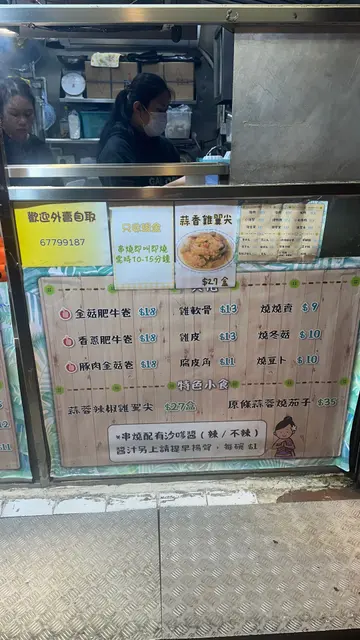 歡迎外賣自取
67799187
只收現金
串燒即叫即燒
需時10-15分鐘
蒜香雞翼尖
$27盒
金菇肥牛卷 $18
雞軟骨 $13
燒燒肯 $9
香蔥肥牛卷 $18
雞皮 $13
燒冬菇 $10
豚肉金菇卷 $18
腐皮角 $11
燒豆卜 $10
特色小食
蒜蓉辣椒雞翼尖 $27盒
原條蒜蓉燒茄子 $35
*串燒配有沙嗲醬(辣/不辣)
醬汁另上請提早揚聲,每碗 $1